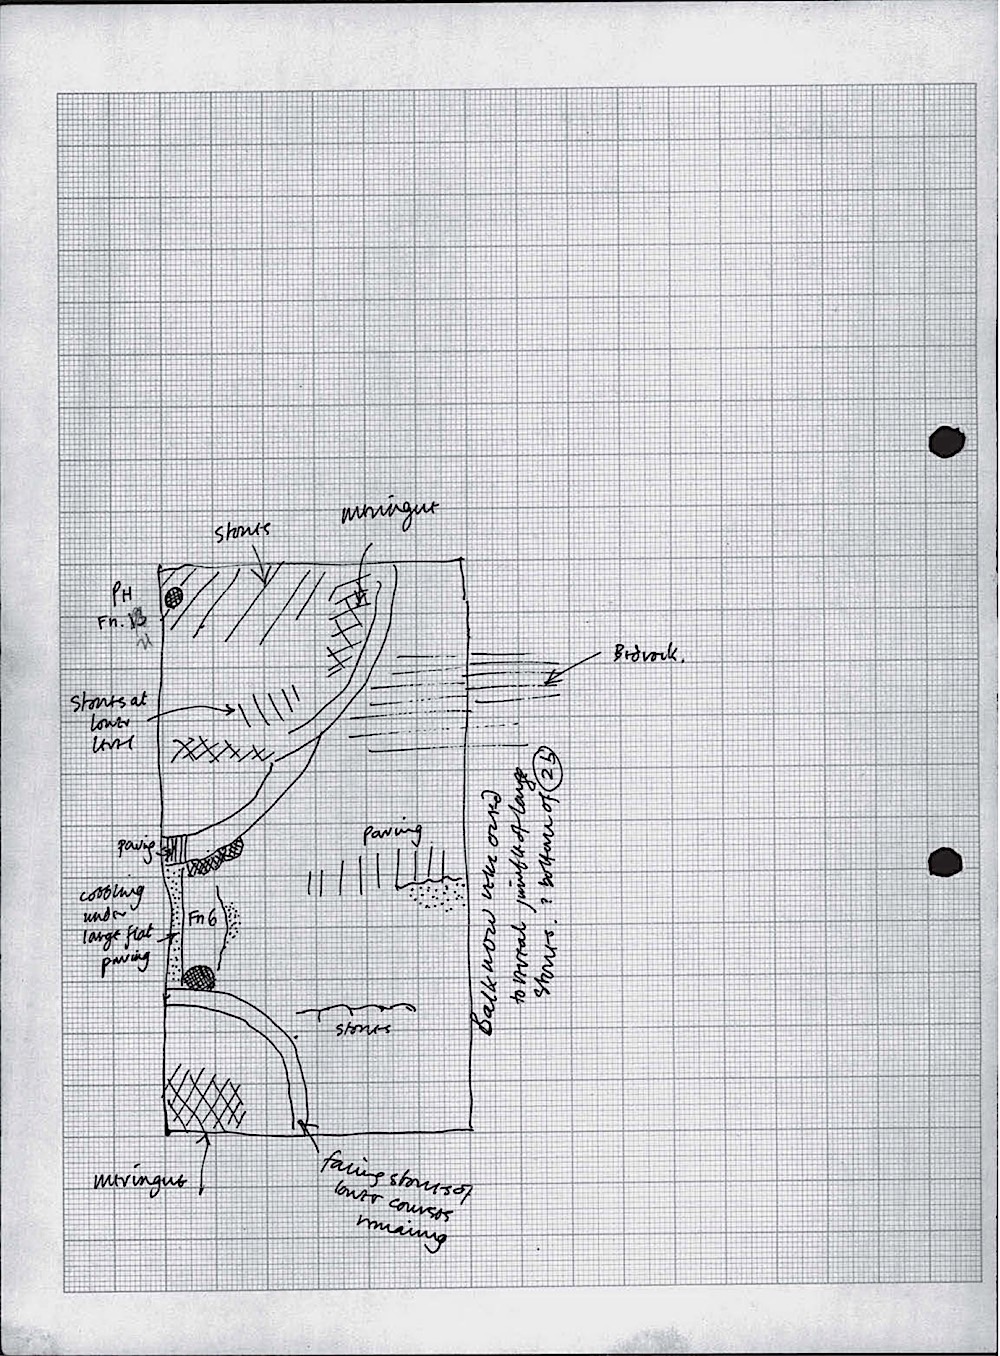 stones
meringue
PH
Fn. 13
Bedrock.
Stones at
lower
level
paving
paving
cobbling
under
large flat
paving
Fn 6
stones
Balk now removed
to reveal jumble of large
stones. ? bottom of 25
meringue
facing stones of
lower courses
remaining